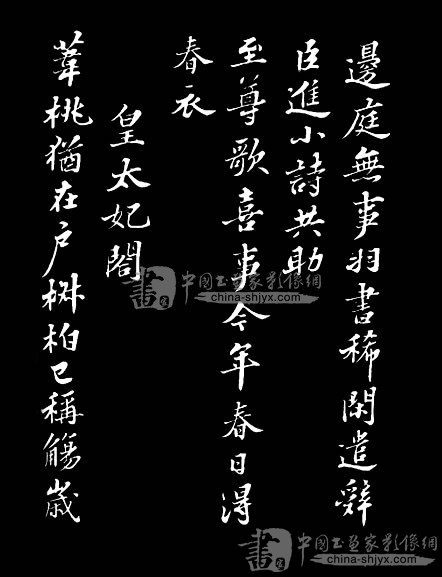 邊庭無事羽書稀閑遣辤
臣進小詩共助
至尊歌喜事今年春日得
春衣
皇太妃閤
葦桃猶在户椒柏已稱觴歲
書 中國书画家影像網
china-shjyx.com
書 中國书画家影像網
www.china-shjyx.com